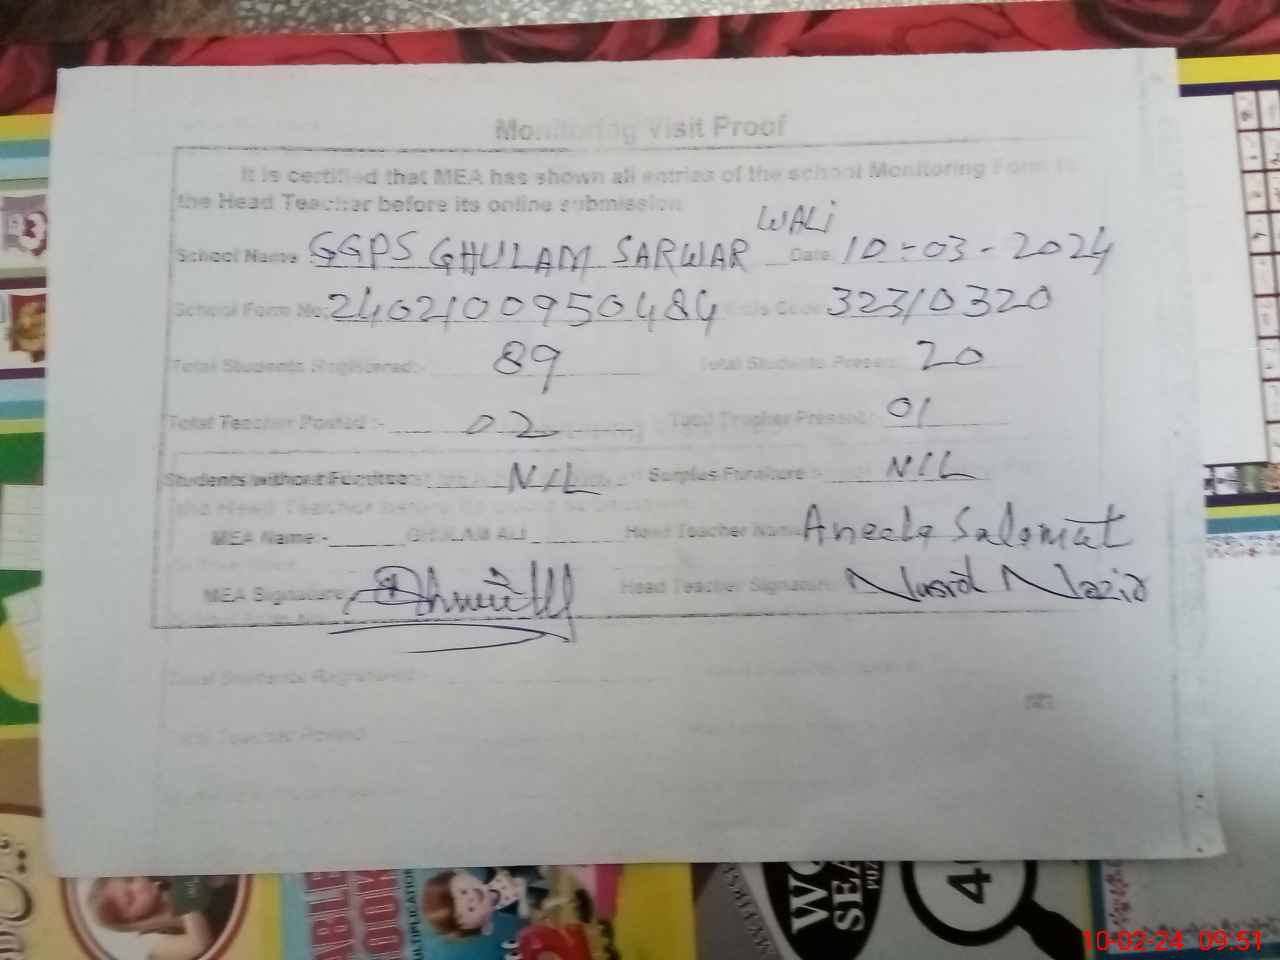 Monitoring Visit Proof
It is certified that MEA has shown all entries of the school Monitoring Form to
the Head Teacher before its online submission
WALI
School Name GGPS GHULAM SARWAR Date 10-03-2024
School Form No: 2402100950484 Code 32310320
Total Students Registered:- 89 Total Students Present: 20
Total Teacher Posted :- 02 Total Teacher Present: 01
Students without Furniture NIL Surplus Furniture :- NIL
MEA Name:- GHULAM ALI Head Teacher Name Aneela Salamat
MEA Signature Head Teacher Signature Nasid Nazir
Total Students Registered:
Total Teacher Posted
ABLE
BOOK
MULTIPLICATION
WO
SEA
PUZ
4
3
10-02-24 09:51